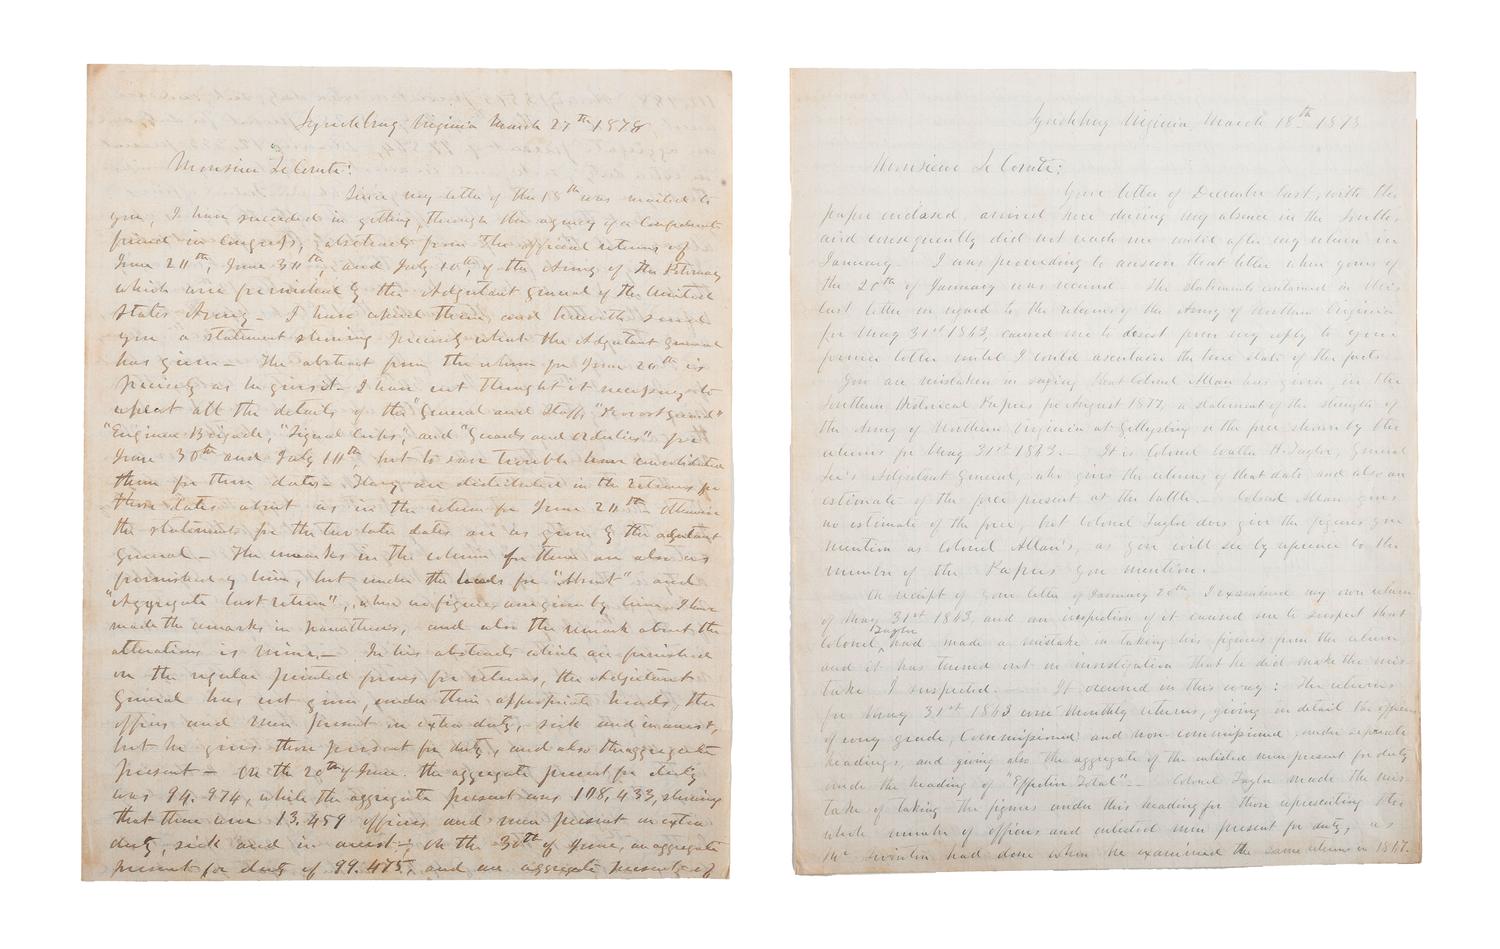 Lynchburg Virginia March 27th 1878
Monsieur Le Comte:
Since my letter of the 18th was mailed to
you, I have succeeded in getting, through the agency of a Confederate
friend in Congress, abstracts from the official returns of
June 20th, June 30th, and July 10th, of the Army of the Potomac
which were furnished by the Adjutant General of the United
States Army - I have copied them, and herewith send
you a statement showing precisely what the Adjutant General
has given - The abstract from the return for June 20th is
precisely as he gives it - I have not thought it necessary to
repeat all the details of the "General and Staff," "Provost Guard"
"Engineer Brigade," "Signal Corps", and "Guards and Orderlies" for
June 30th and July 10th, but to save trouble have consolidated
them for those dates - They are distributed in the returns for
those dates about as in the return for June 20th - Otherwise
the statements for the two later dates are as given by the adjutant
General - The remarks in the column for them are also as
furnished by him, but under the heads for "Absent" and
"Aggregate last return", when no figures are given by him, I have
made the remarks in parenthesis, and also the remark about the
alterations is mine. - In his abstracts which are furnished
on the regular printed forms for returns, the Adjutant
General has not given, under their appropriate heads, the
officers and men present on extra duty, sick and in arrest,
but he gives those present for duty, and also the aggregate
present - On the 20th of June. the aggregate present for duty
was 94.974, while the aggregate present was 108,433, showing
that there were 13.459 officers and men present on extra
duty, sick and in arrest -; On the 30th of June, an aggregate
present for duty of 99.475, and an aggregate present of
Lynchburg Virginia, March 18th 1878
Monsieur Le Comte:
Your letter of December last, with the
paper enclosed, arrived here during my absence in the South,
and consequently did not reach me until after my return in
January - I was proceeding to answer that letter when yours of
the 20th of January was received - The statements contained in this
last letter in regard to the returns of the Army of Northern Virginia
for May 31st 1863, caused me to desist from my reply to your
former letter until I could ascertain the true state of the facts.
You are mistaken in saying that Colonel Allan has given, in the
Southern Historical Papers for August 1877, a statement of the strength of
the Army of Northern Virginia at Gettysburg or the force shown by the
returns for May 31st 1863. - It is Colonel Walter H. Taylor, General
Lee's Adjutant General, who gives the returns of that date and also an
estimate of the force present at the battle. - Colonel Allan gives
no estimate of the force, but Colonel Taylor does give the figures you
mention as Colonel Allan's, as you will see by reference to the
number of the Papers you mention.
On receipt of your letter of January 20th I examined my own return
of May 31st 1863, and an inspection of it caused me to suspect that
Colonel Taylor had made a mistake in taking his figures from the return
and it has turned out on investigation that he did make the mis-
take I suspected. - It occurred in this way: The returns
for May 31st 1863 were Monthly returns, giving in detail the officers
of every grade, Commissioned and non-commissioned, under separate
headings, and giving also the aggregate of the enlisted men present for duty
under the heading of "Effective Total" - Colonel Taylor made the mis-
take of taking the figures under this heading for those representing the
whole number of officers and enlisted men present for duty, as
Mr Swinton had done when he examined the same returns in 1867.